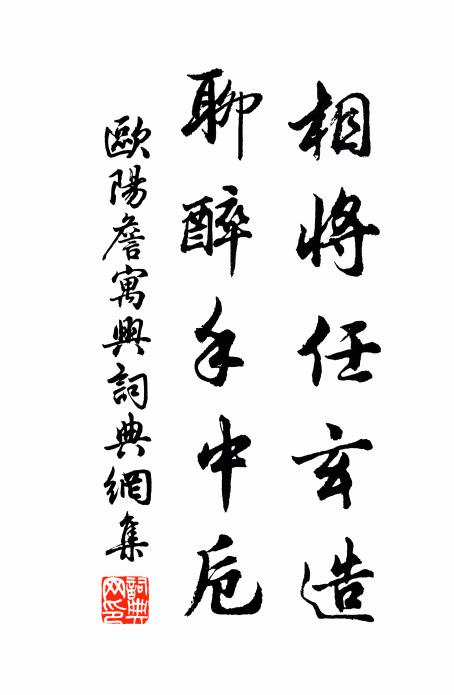 相將任玄造
聊醉手中卮
歐陽詹寓興詞典網集
詞典網印